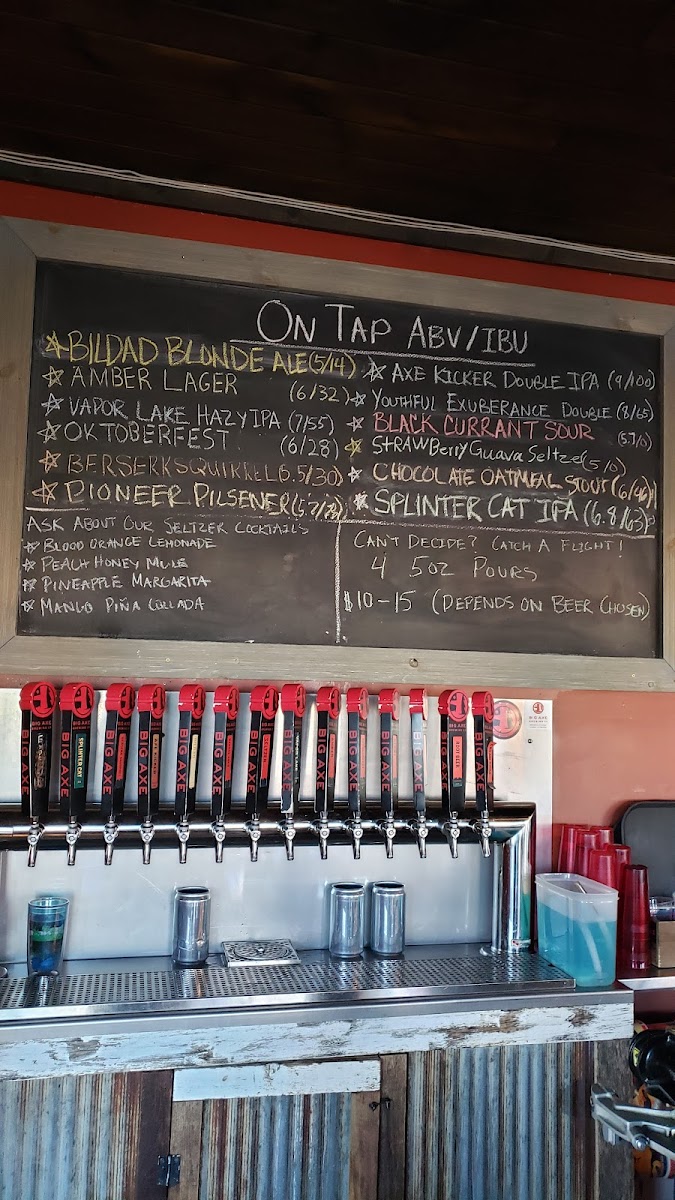 ON TAP ABV/IBU
BILDAD BLONDE ALE (5/14)
AMBER LAGER (6/32)
VAPOR LAKE HAZY IPA (7/55)
OKTOBERFEST (6/28)
BERSERK SQUIRREL (6.5/30)
PIONEER PILSENER
AXE KICKER DOUBLE IPA (9/100)
YOUTHFUL EXUBERANCE DOUBLE (8/65)
BLACK CURRANT SOUR (5.7/0)
STRAWBERRY Guava Seltzer (5/0)
CHOCOLATE OATMEAL STOUT
SPLINTER CAT IPA (6.8/63)
ASK ABOUT OUR SELTZER COCKTAILS
BLOOD ORANGE LEMONADE
PEACH HONEY MULE
PINEAPPLE MARGARITA
MANGO PIÑA COLLADA
CAN'T DECIDE? CATCH A FLIGHT!
4 5OZ POURS
$10-15 (DEPENDS ON BEER CHOSEN)
BIG AXE
BIG AXE
SPLINTER CAT
BIG AXE
BIG AXE
BIG AXE
BIG AXE
BIG AXE
BIG AXE
BIG AXE
BIG AXE
BIG AXE
BIG AXE
BIG AXE
ROOT BEER
BIG AXE
BIG AXE